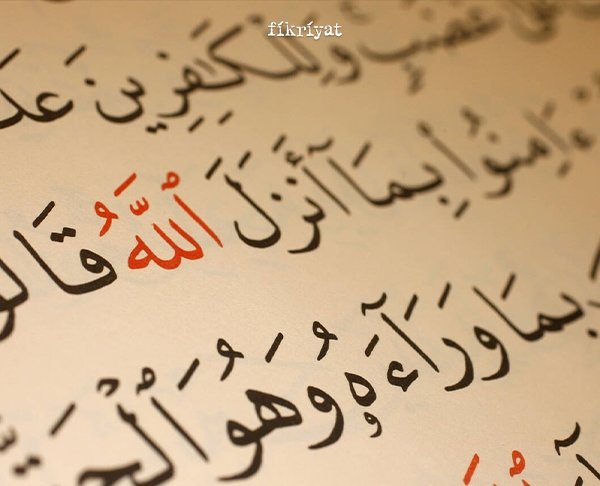 fíkríyat
غَضَبٍ وَلِلْكَٰفِرِينَ
ءَامِنُوا۟ بِمَآ أَنزَلَ ٱللَّهُ
بِمَا وَرَآءَهُۥ وَهُوَ